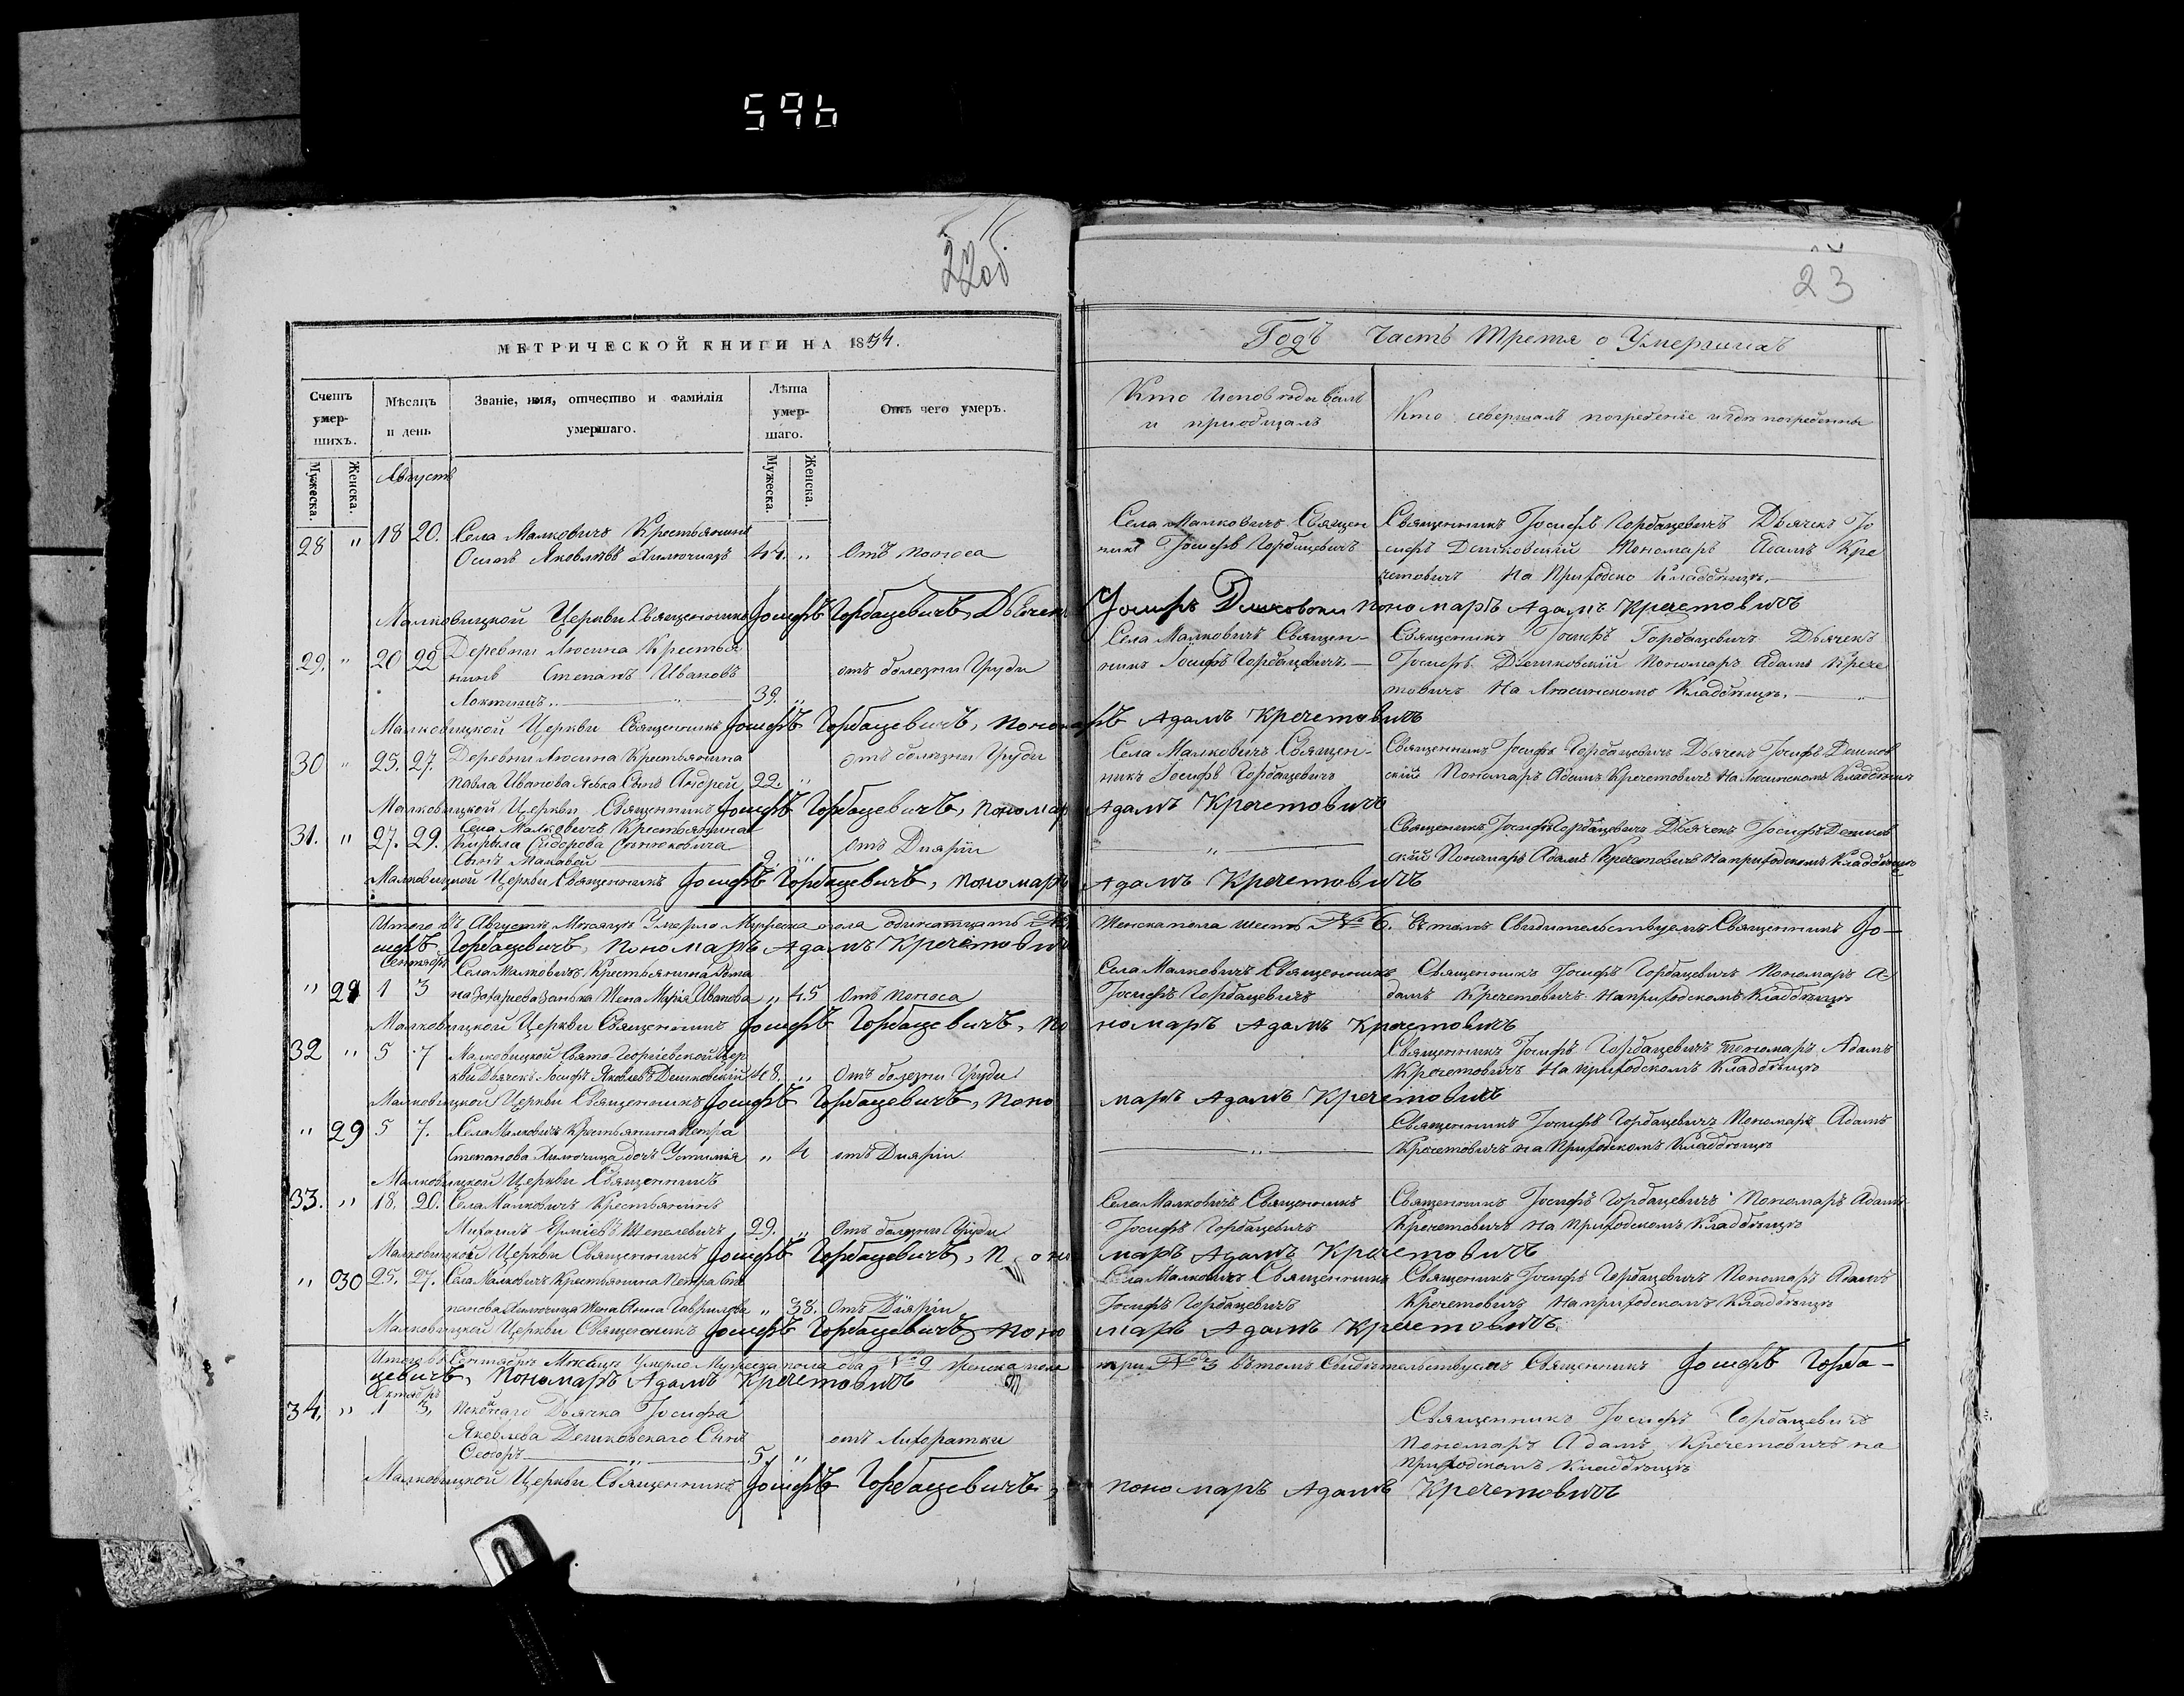 596
22об
23
МЕТРИЧЕСКОЙ КНИГИ НА 1854.
Годъ Часть Третя о Умершихъ
Счетъ умер-
шихъ.
Мужеска.
Женска.
Мѣсяцъ
и день
Званіе, имя, отчество и фамилія
умершаго.
Лѣта
умер-
шаго.
Мужеска.
Женска.
Отъ чего умеръ.
Кто исповѣдывалъ
и приобщалъ
Кто совершалъ погребеніе и гдѣ погребены
Августъ
28 " 18 20. Села Малковичъ Крестьянинъ
Осипъ Яковлевъ Хилючицъ 44. " Отъ поноса
Села Малковичъ Священ
никъ Іосифъ Горбацевичъ
Священникъ Іосифъ Горбацевичъ Дьячекъ Іо
сифъ Дешковскій Пономаръ Адамъ Кре
четовичъ На Приходско Кладбищѣ.
Малковицкой Церкви Священникъ Іосифъ Горбацевичъ, Дьячекъ Іосифъ Дешковски пономаръ Адамъ Кречетовичъ
29. " 20 22 Деревни Люсина Крестья
нинъ Степанъ Ивановъ
Локтишъ. 39. " отъ болезни Груди
Села Малковичъ Священ-
никъ Іосифъ Горбацевичъ
Священикъ Іосифъ Горбацевичъ Дьячекъ
Іосифъ Дешковскій Пономаръ Адамъ Крече
товичъ На Люсинскомъ Кладбищѣ.
Малковицкой Церкви Священникъ Іосифъ Горбацевичъ, пономаръ Адамъ Кречетовичъ
30 " 25. 27. Деревни Люсина Крестьянина
Павла Иванова Яська Сынъ Андрей 22 " отъ болезни Груди
Села Малковичъ Священ-
никъ Іосифъ Горбацевичъ
Священникъ Іосифъ Горбацевичъ Дьячекъ Іосифъ Дешков
скій Пономаръ Адамъ Кречетовичъ На Люсинскомъ Кладбищѣ
Малковицкой Церкви Священникъ Іосифъ Горбацевичъ, пономар Адамъ Кречетовичъ
31. " 27. 29. Села Малковичъ Крестьянина
Кирыла Сидорова
Сынъ Макавей 2. " отъ Диярiи
Священникъ Іосифъ Горбацевичъ Дьячекъ Іосифъ Дешков
скій Пономаръ Адамъ Кречетовичъ На приходскомъ Кладбищѣ
Малковицкой Церкви Священникъ Іосифъ Горбацевичъ, пономаръ Адамъ Кречетовичъ
Итого въ Августѣ Месяцѣ Умерло Мужеска пола
Женска пола шесть № 6. въ томъ Свидительствуемъ Священникъ Іо-
сифъ Горбацевичъ, пономаръ Адамъ Кречетовичъ
Сентябрь
" 28 1 3 Села Малковичъ Крестьянина
Жена Марія Иванова " 45 Отъ поноса
Села Малковичъ Священникъ
Іосифъ Горбацевичъ
Священникъ Іосифъ Горбацевичъ Пономаръ А-
дамъ Кречетовичъ На приходскомъ Кладбищѣ
Малковицкой Церкви Священникъ Іосифъ Горбацевичъ, пономаръ Адамъ Кречетовичъ
32 " 5 7 Малковицкой Свято-Георгіевской Цер
кви Дьячекъ Іосифъ Яковлевъ Дешковскій 48. " Отъ болезни Груди
Священникъ Іосифъ Горбацевичъ Пономаръ Адамъ
Кречетовичъ На приходскомъ Кладбищѣ
Малковицкой Церкви Священникъ Іосифъ Горбацевичъ, пономаръ Адамъ Кречетовичъ
" 29 5 7. Села Малковичъ Крестьянина Петра
Степанова Хилючица дочъ Устинія " 4 отъ Диярiи
Священникъ Іосифъ Горбацевичъ Пономаръ Адамъ
Кречетовичъ на Приходскомъ Кладбищѣ
Малковицкой Церкви Священникъ
33. " 18. 20. Села Малковичъ Крестьянинъ
Михаилъ Шепелевичъ 29. " Отъ болезни Груди
Села Малковичъ Священникъ
Іосифъ Горбацевичъ
Священникъ Іосифъ Горбацевичъ Пономаръ Адамъ
Кречетовичъ На приходскомъ Кладбищѣ
Малковицкой Церкви Священникъ Іосифъ Горбацевичъ, пономаръ Адамъ Кречетовичъ
" 30 25. 27. Села Малковичъ Крестьянина Петра Сте
панова Хилючица Жена Анна Гаврилова " 38. Отъ Диярiи
Села Малковичъ Священникъ
Іосифъ Горбацевичъ
Священникъ Іосифъ Горбацевичъ Пономаръ Адамъ
Кречетовичъ На приходскомъ Кладбищѣ
Малковицкой Церкви Священникъ Іосифъ Горбацевичъ, пономаръ Адамъ Кречетовичъ
Итого въ Сентябрѣ Месяцѣ Умерло Мужеска пола два № 2 Женска пола три № 3 въ томъ Свидительствуемъ Священникъ Іосифъ Горба-
цевичъ, Пономаръ Адамъ Кречетовичъ
Октябрь
34. " 1 3. Дьячка Іосифа
Яковлева Дешковскаго Сынъ
Ѳеодоръ 5. " отъ Лихоратки
Священникъ Іосифъ Горбацевичъ
Пономаръ Адамъ Кречетовичъ на
приходскомъ Кладбищѣ
Малковицкой Церкви Священникъ Іосифъ Горбацевичъ, пономаръ Адамъ Кречетовичъ